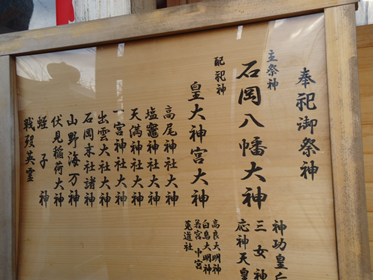 奉祀御祭神
主祭神
石岡八幡大神
神功皇后
三女神
応神天皇
配祀神
皇大神宮大神
高良大明神
白鳥大明神
若宮 中宮
高尾神社大神
塩竈神社大神
天満神社大神
一宮神社大神
出雲大社大神
石岡末社諸神
山野海万神
伏見稲荷大神
蛭子神
戦殁英霊